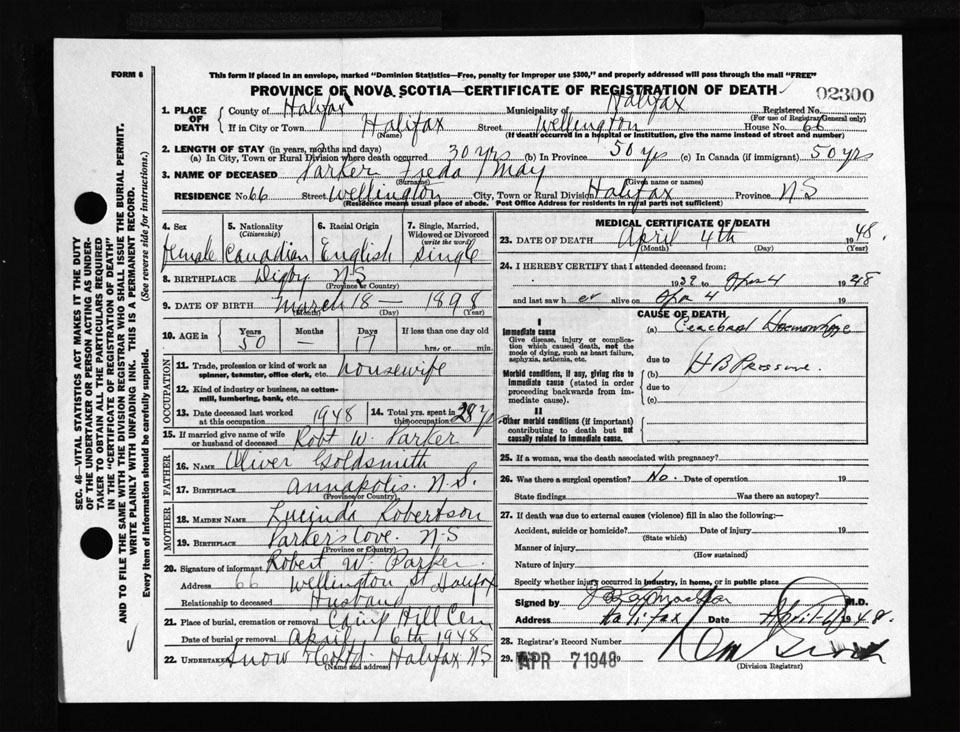 FORM 6
This form if placed in an envelope, marked "Dominion Statistics—Free, penalty for improper use $300," and properly addressed will pass through the mail "FREE"
PROVINCE OF NOVA SCOTIA—CERTIFICATE OF REGISTRATION OF DEATH
02300
1. PLACE OF DEATH
County of Halifax Municipality of Halifax Registered No.
(For use of Registrar General only)
If in City or Town Halifax Street Wellington House No. 66
(Name) (If death occurred in a hospital or institution, give the name instead of street and number)
2. LENGTH OF STAY (in years, months and days)
(a) In City, Town or Rural Division where death occurred 30 yrs (b) In Province 50 yrs (c) In Canada (if immigrant) 50 yrs
3. NAME OF DECEASED Parker Freda May
(Surname) (Given name or names)
RESIDENCE No. 66 Street Wellington City, Town or Rural Division Halifax Province N S
(Residence means usual place of abode. Post Office Address for residents in rural parts not sufficient)
4. Sex
Female
5. Nationality
(Citizenship)
Canadian
6. Racial Origin
English
7. Single, Married, Widowed or Divorced
(write the word)
Single
8. BIRTHPLACE Digby N S
(Province or Country)
9. DATE OF BIRTH March 18 — 1898
(Month) (Day) (Year)
10. AGE in
Years Months Days If less than one day old
50 — 17 hrs. or min.
OCCUPATION
11. Trade, profession or kind of work as spinner, teamster, office clerk, etc. housewife
12. Kind of industry or business, as cotton-mill, lumbering, bank, etc.
13. Date deceased last worked at this occupation 1948
14. Total yrs. spent in this occupation 28 yrs
15. If married give name of wife or husband of deceased Robt W. Parker
FATHER
16. NAME Oliver Goldsmith
17. BIRTHPLACE Annapolis. N. S.
(Province or Country)
MOTHER
18. MAIDEN NAME Lucinda Robertson
19. BIRTHPLACE Parkers Cove. N. S
(Province or Country)
20. Signature of informant Robert W. Parker
Address 66 Wellington St Halifax
Relationship to deceased Husband
21. Place of burial, cremation or removal Camp Hill Cem
Date of burial or removal April 6th 1948
22. UNDERTAKER Snow & Co Ltd. Halifax N S
(Name and address)
MEDICAL CERTIFICATE OF DEATH
23. DATE OF DEATH April 4th 1948.
(Month) (Day) (Year)
24. I HEREBY CERTIFY that I attended deceased from:
1932 to Apr 4 1948
and last saw h er alive on Apr 4 19
CAUSE OF DEATH
I
Immediate cause
Give disease, injury or complication which caused death, not the mode of dying, such as heart failure, asphyxia, asthenia, etc.
(a) Cerebral Haemorrhage
due to
Morbid conditions, if any, giving rise to immediate cause (stated in order proceeding backwards from immediate cause).
(b) H B Pressure.
due to
(c)
II
Other morbid conditions (if important) contributing to death but not causally related to immediate cause.
25. If a woman, was the death associated with pregnancy?
26. Was there a surgical operation? No. Date of operation 19
State findings Was there an autopsy?
27. If death was due to external causes (violence) fill in also the following:—
Accident, suicide or homicide? Date of injury 19
(State which)
Manner of injury
(How sustained)
Nature of injury
Specify whether injury occurred in industry, in home, or in public place
Signed by M.D.
Address Halifax Date April 4 1948.
28. Registrar's Record Number
29. APR 7 1948 19
(Division Registrar)
SEC. 46—VITAL STATISTICS ACT MAKES IT THE DUTY
OF THE UNDERTAKER OR PERSON ACTING AS UNDER-
TAKER TO OBTAIN ALL THE PARTICULARS REQUIRED
IN THE "CERTIFICATE OF REGISTRATION OF DEATH"
AND TO FILE THE SAME WITH THE DIVISION REGISTRAR WHO SHALL ISSUE THE BURIAL PERMIT.
WRITE PLAINLY WITH UNFADING INK. THIS IS A PERMANENT RECORD.
Every item of information should be carefully supplied. (See reverse side for instructions.)